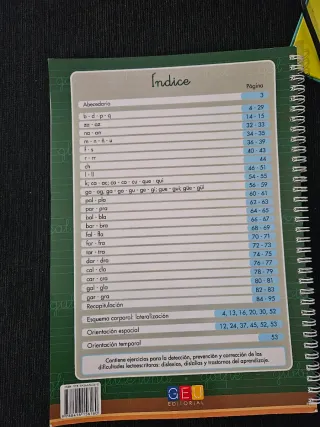 Índice
Página
Abecedario 3
b - d - p - q 4 - 29
sa - as 14 - 15
na - an 32 - 33
m - n - ñ - u 34 - 35
f - s 36 - 39
r - rr 40 - 43
ch 44
l - ll 46 - 51
k; ca - ac; co - ca - cu - que - qui 54 - 55
ga - ag; ga - go - gu - ge - gi; gue - gui; güe - güi 56 - 59
pal - pla 60 - 61
par - pra 62 - 63
bal - bla 64 - 65
bar - bra 66 - 67
fal - fla 68 - 69
far - fra 70 - 71
tar - tra 72 - 73
dar - dra 74 - 75
cal - cla 76 - 77
car - cra 78 - 79
gal - gla 80 - 81
gar - gra 82 - 83
Recapitulación 84 - 95
Esquema corporal: lateralización 4, 13, 16, 20, 30, 52
Orientación espacial 12, 24, 37, 45, 52, 53
Orientación temporal 53
Contiene ejercicios para la detección, prevención y corrección de las
dificultades lectoescritoras: dislexias, dislalias y trastornos del aprendizaje.
GEU
EDITORIAL